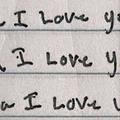 I Love y
I Love y
a I Love